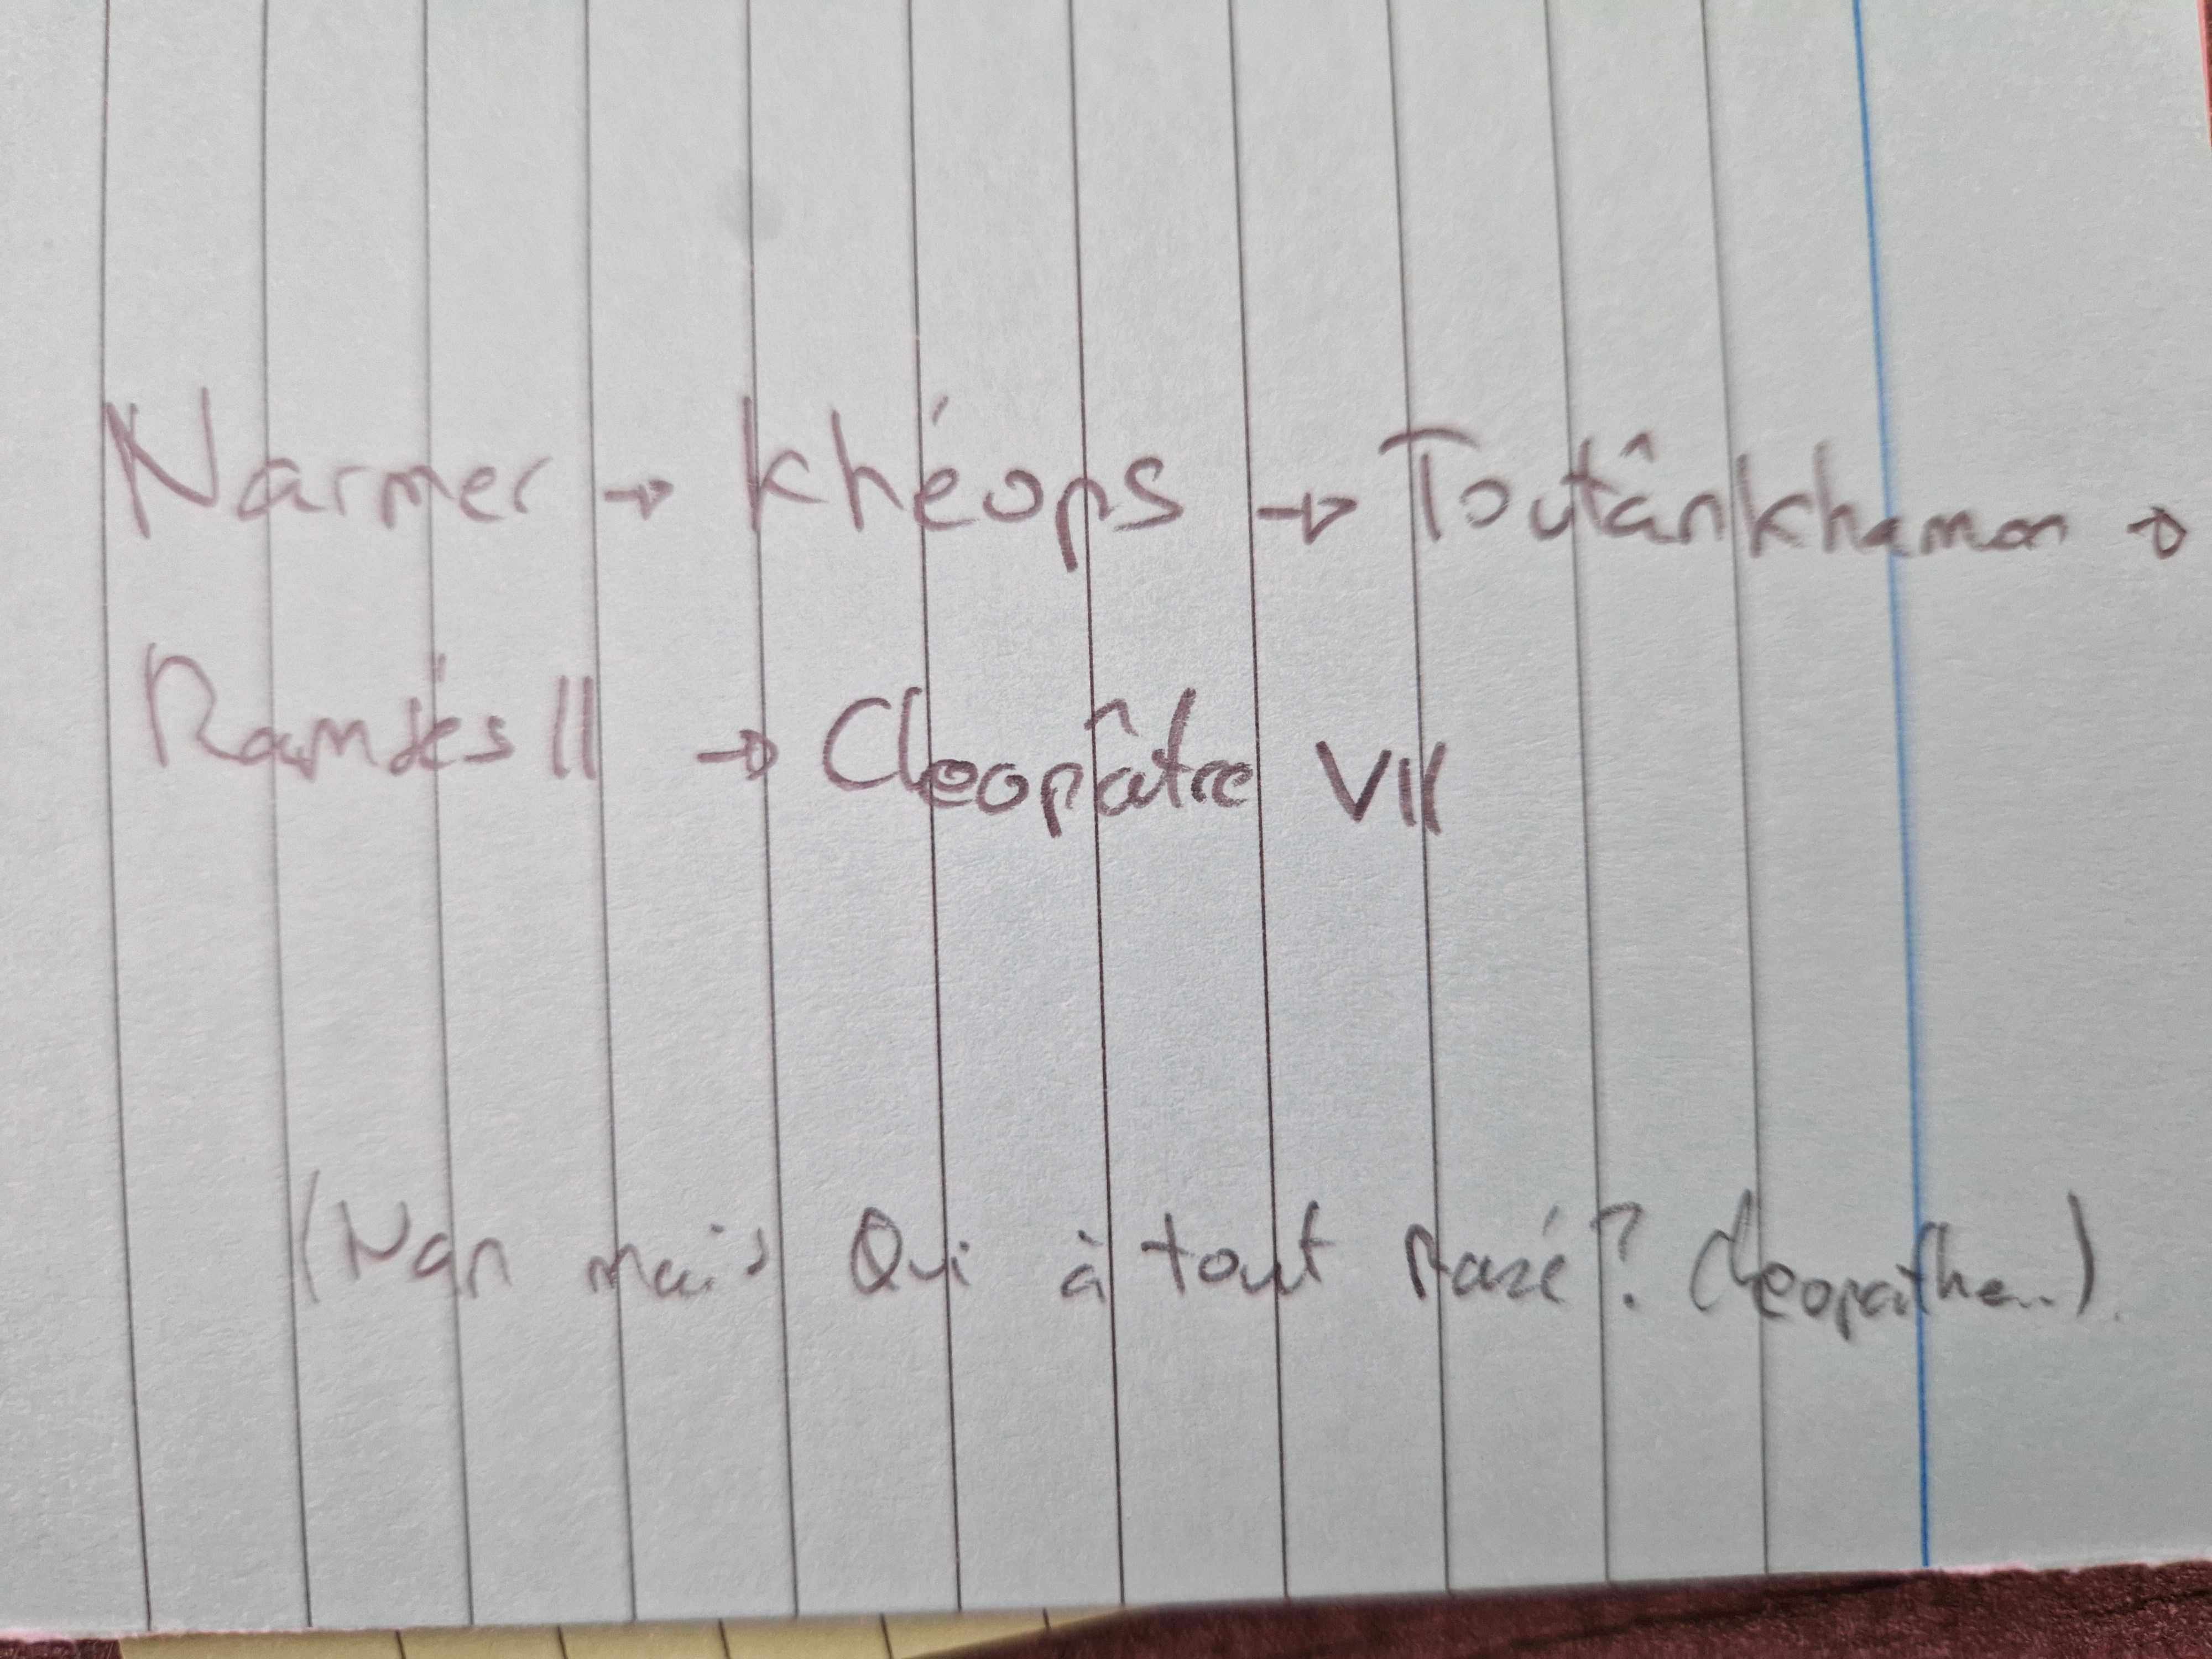 Narmer → Khéops → Toutânkhamon →
Ramsès II → Cleopâtre VII
(Nan mais Qui à tout rasé? Cleopathe..).